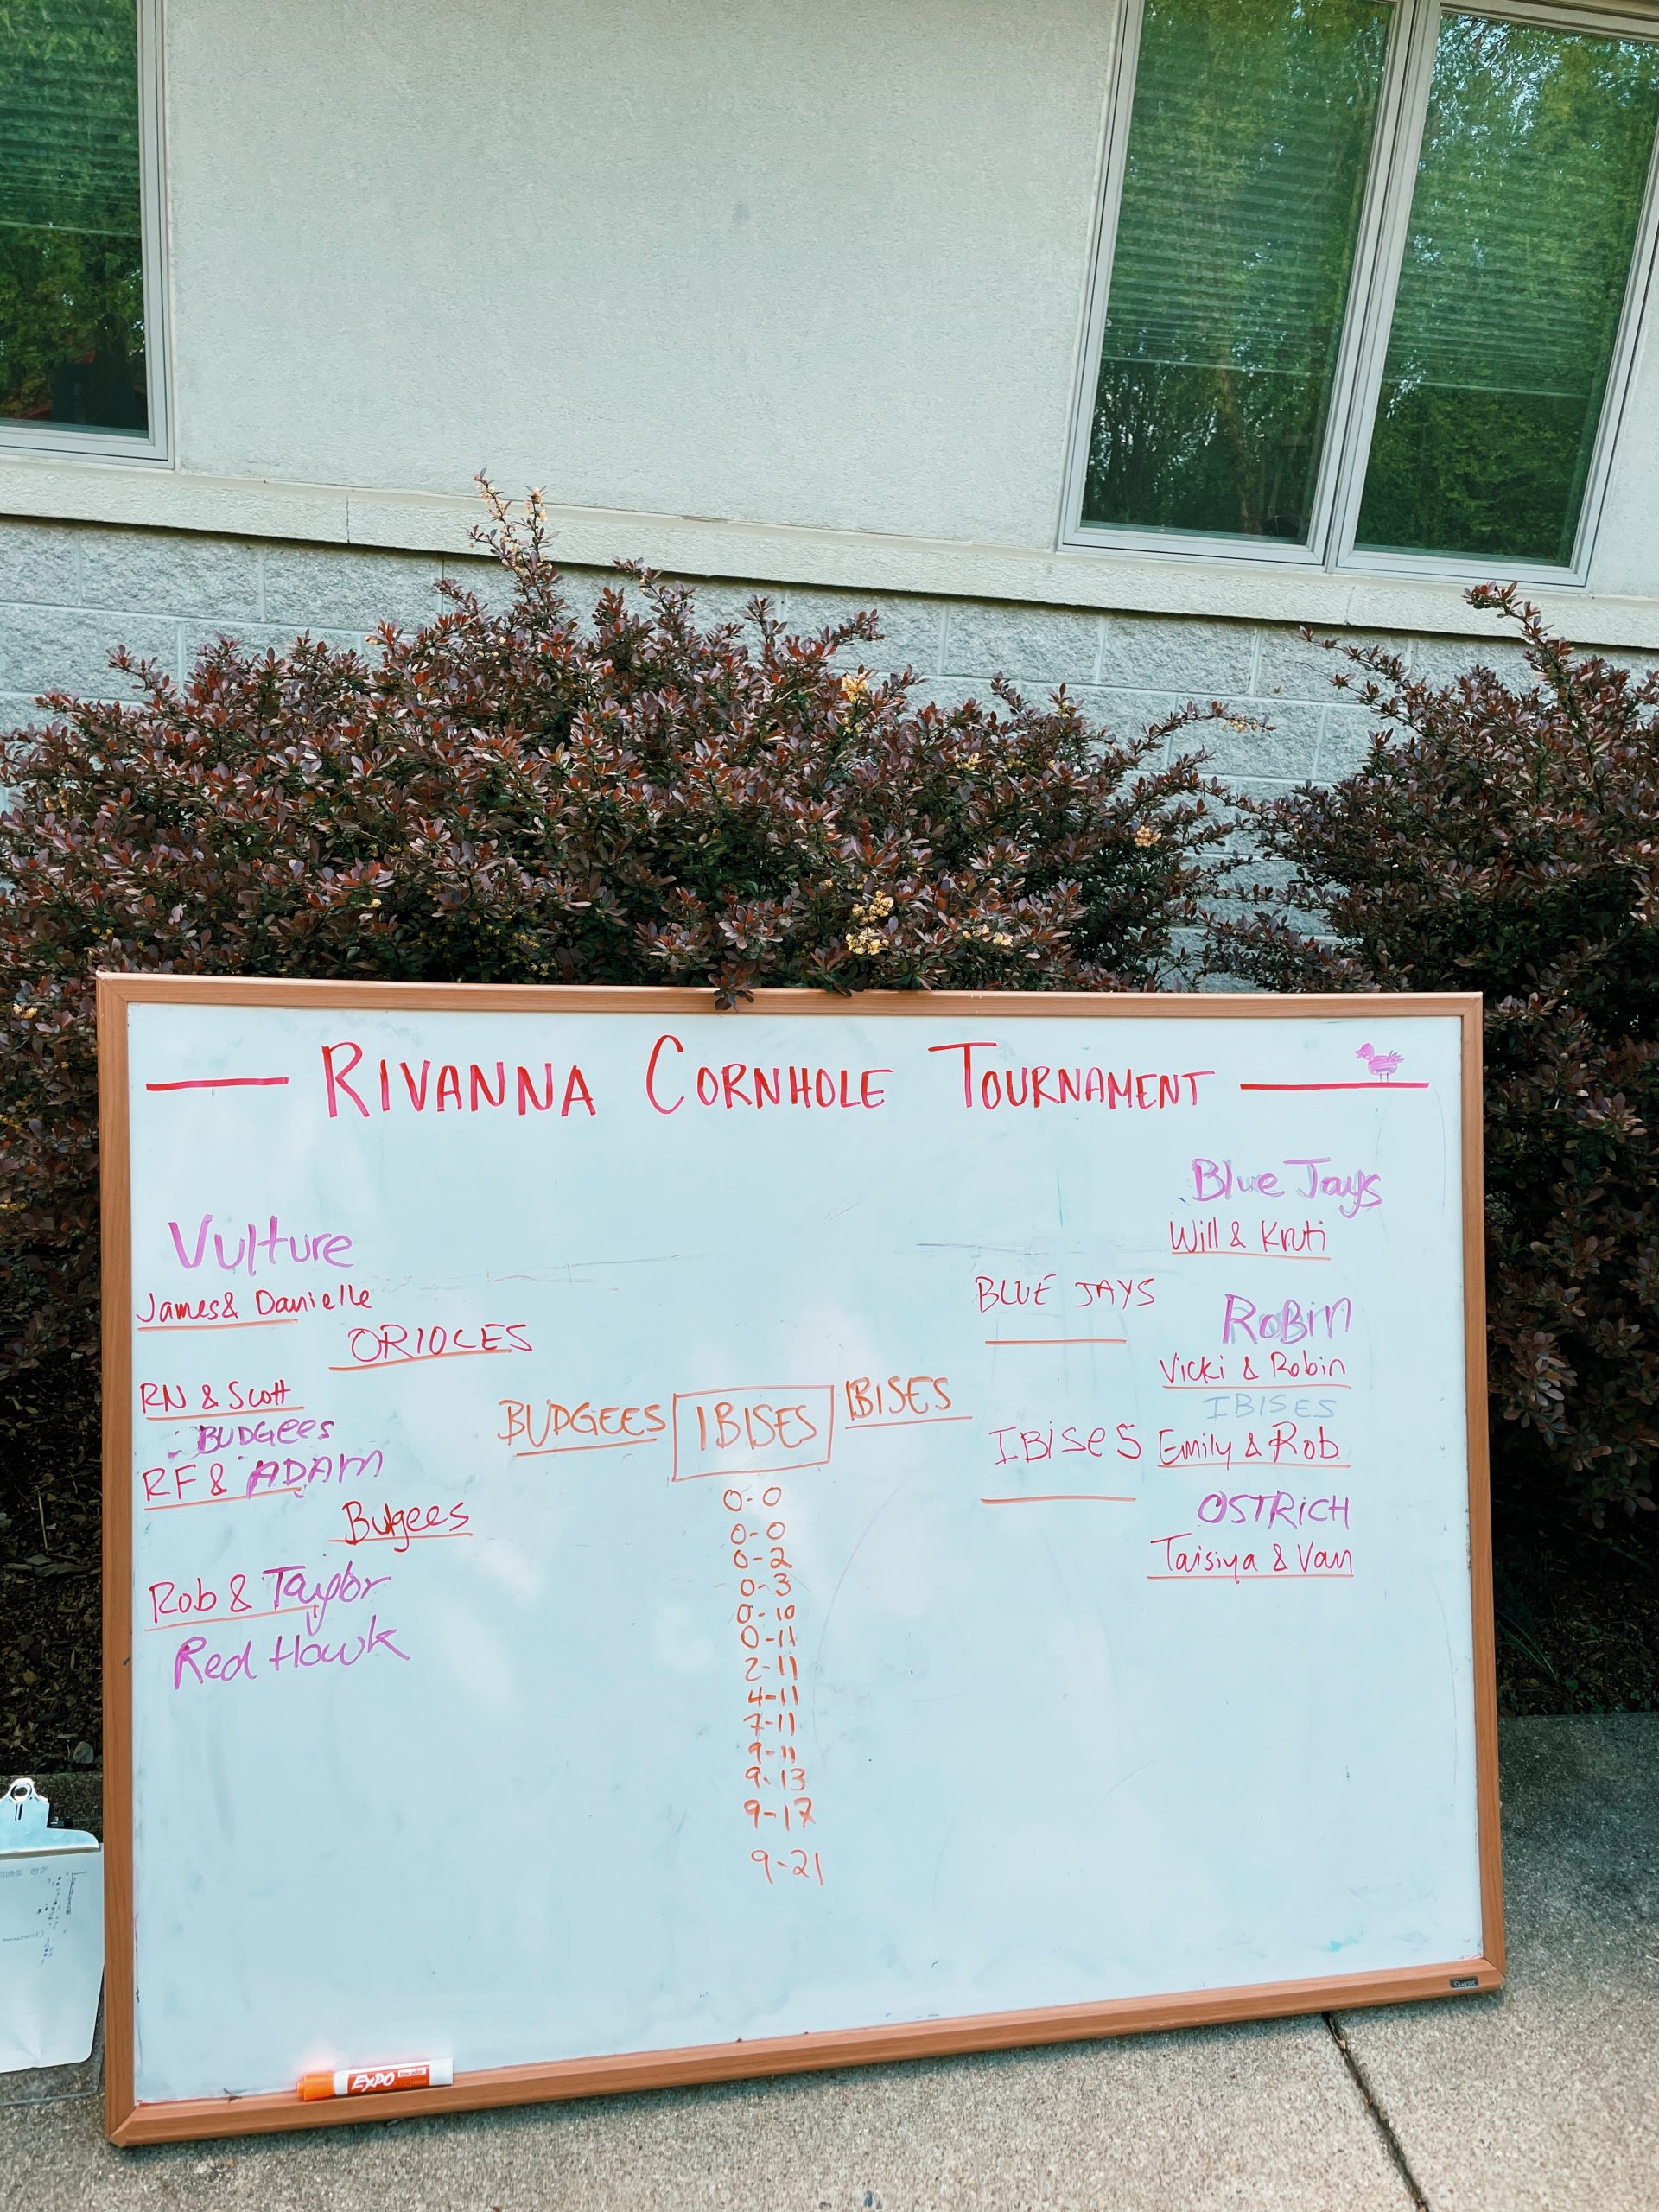 RIVANNA CORNHOLE TOURNAMENT
Vulture
James & Danielle
ORIOLES
RN & Scott
BUDGEES
RF & ADAM
Budgees
Rob & Taylor
Red Hawk
BUDGEES
IBISES
IBISES
0-0
0-0
0-2
0-3
0-10
0-11
2-11
4-11
7-11
9-11
9-13
9-17
9-21
BLUE JAYS
IBISES
Blue Jays
Will & Kruti
Robin
Vicki & Robin
IBISES
Emily & Rob
OSTRICH
Taisiya & Van
EXPO